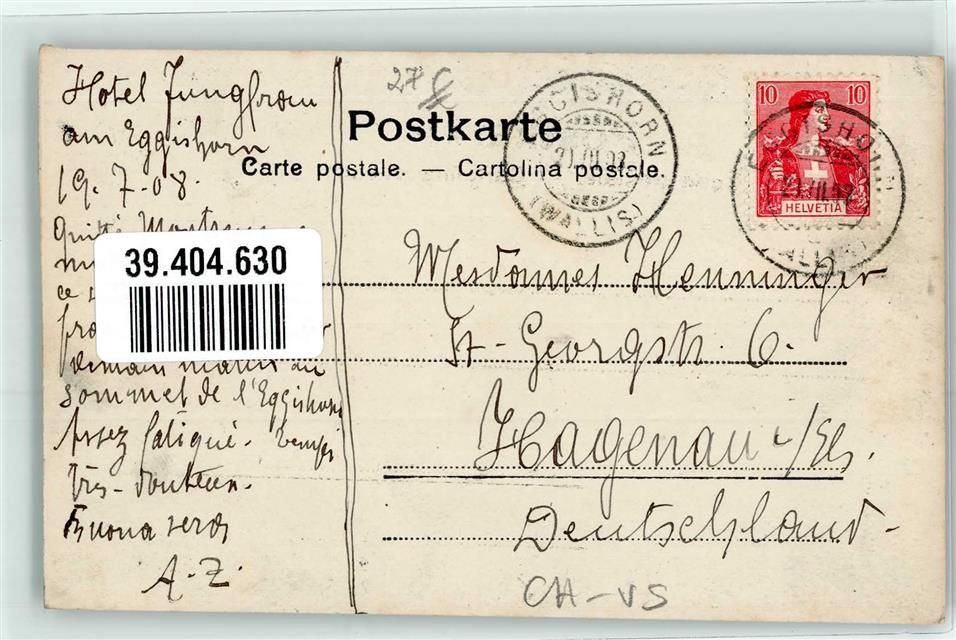 Hotel Jungfrau
am Eggishorn
19. 7-08.
Quitté
ce
demain matin au
sommet de l'Eggishorn
Assez fatigué. Temps
très-douteux.
Buona sera
A-Z.
39.404.630
27
Postkarte
Carte postale. — Cartolina postale.
EGGISHORN
(WALLIS)
10 10
HELVETIA
EGGISHORN
(WALLIS)
Mesdames Henninger
St-Georgstr. 6.
Hagenau i/Els.
Deutschland-
CH-VS